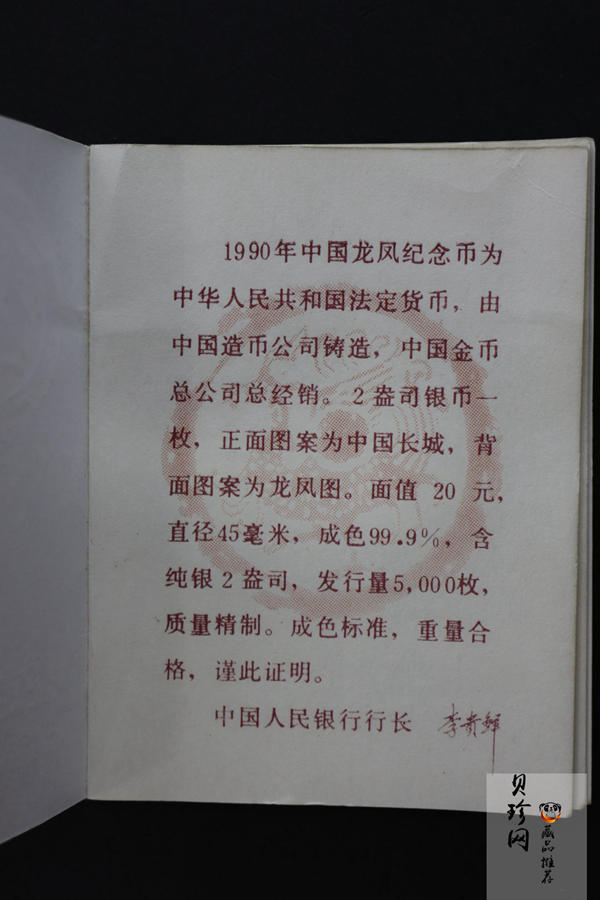 1990年中国龙凤纪念币为
中华人民共和国法定货币，由
中国造币公司铸造，中国金币
总公司总经销。2盎司银币一
枚，正面图案为中国长城，背
面图案为龙凤图。面值 20 元，
直径45毫米，成色99.9%，含
纯银2盎司，发行量5,000枚，
质量精制。成色标准，重量合
格，谨此证明。
中国人民银行行长 李贵鲜
贝珍网
藏品推荐